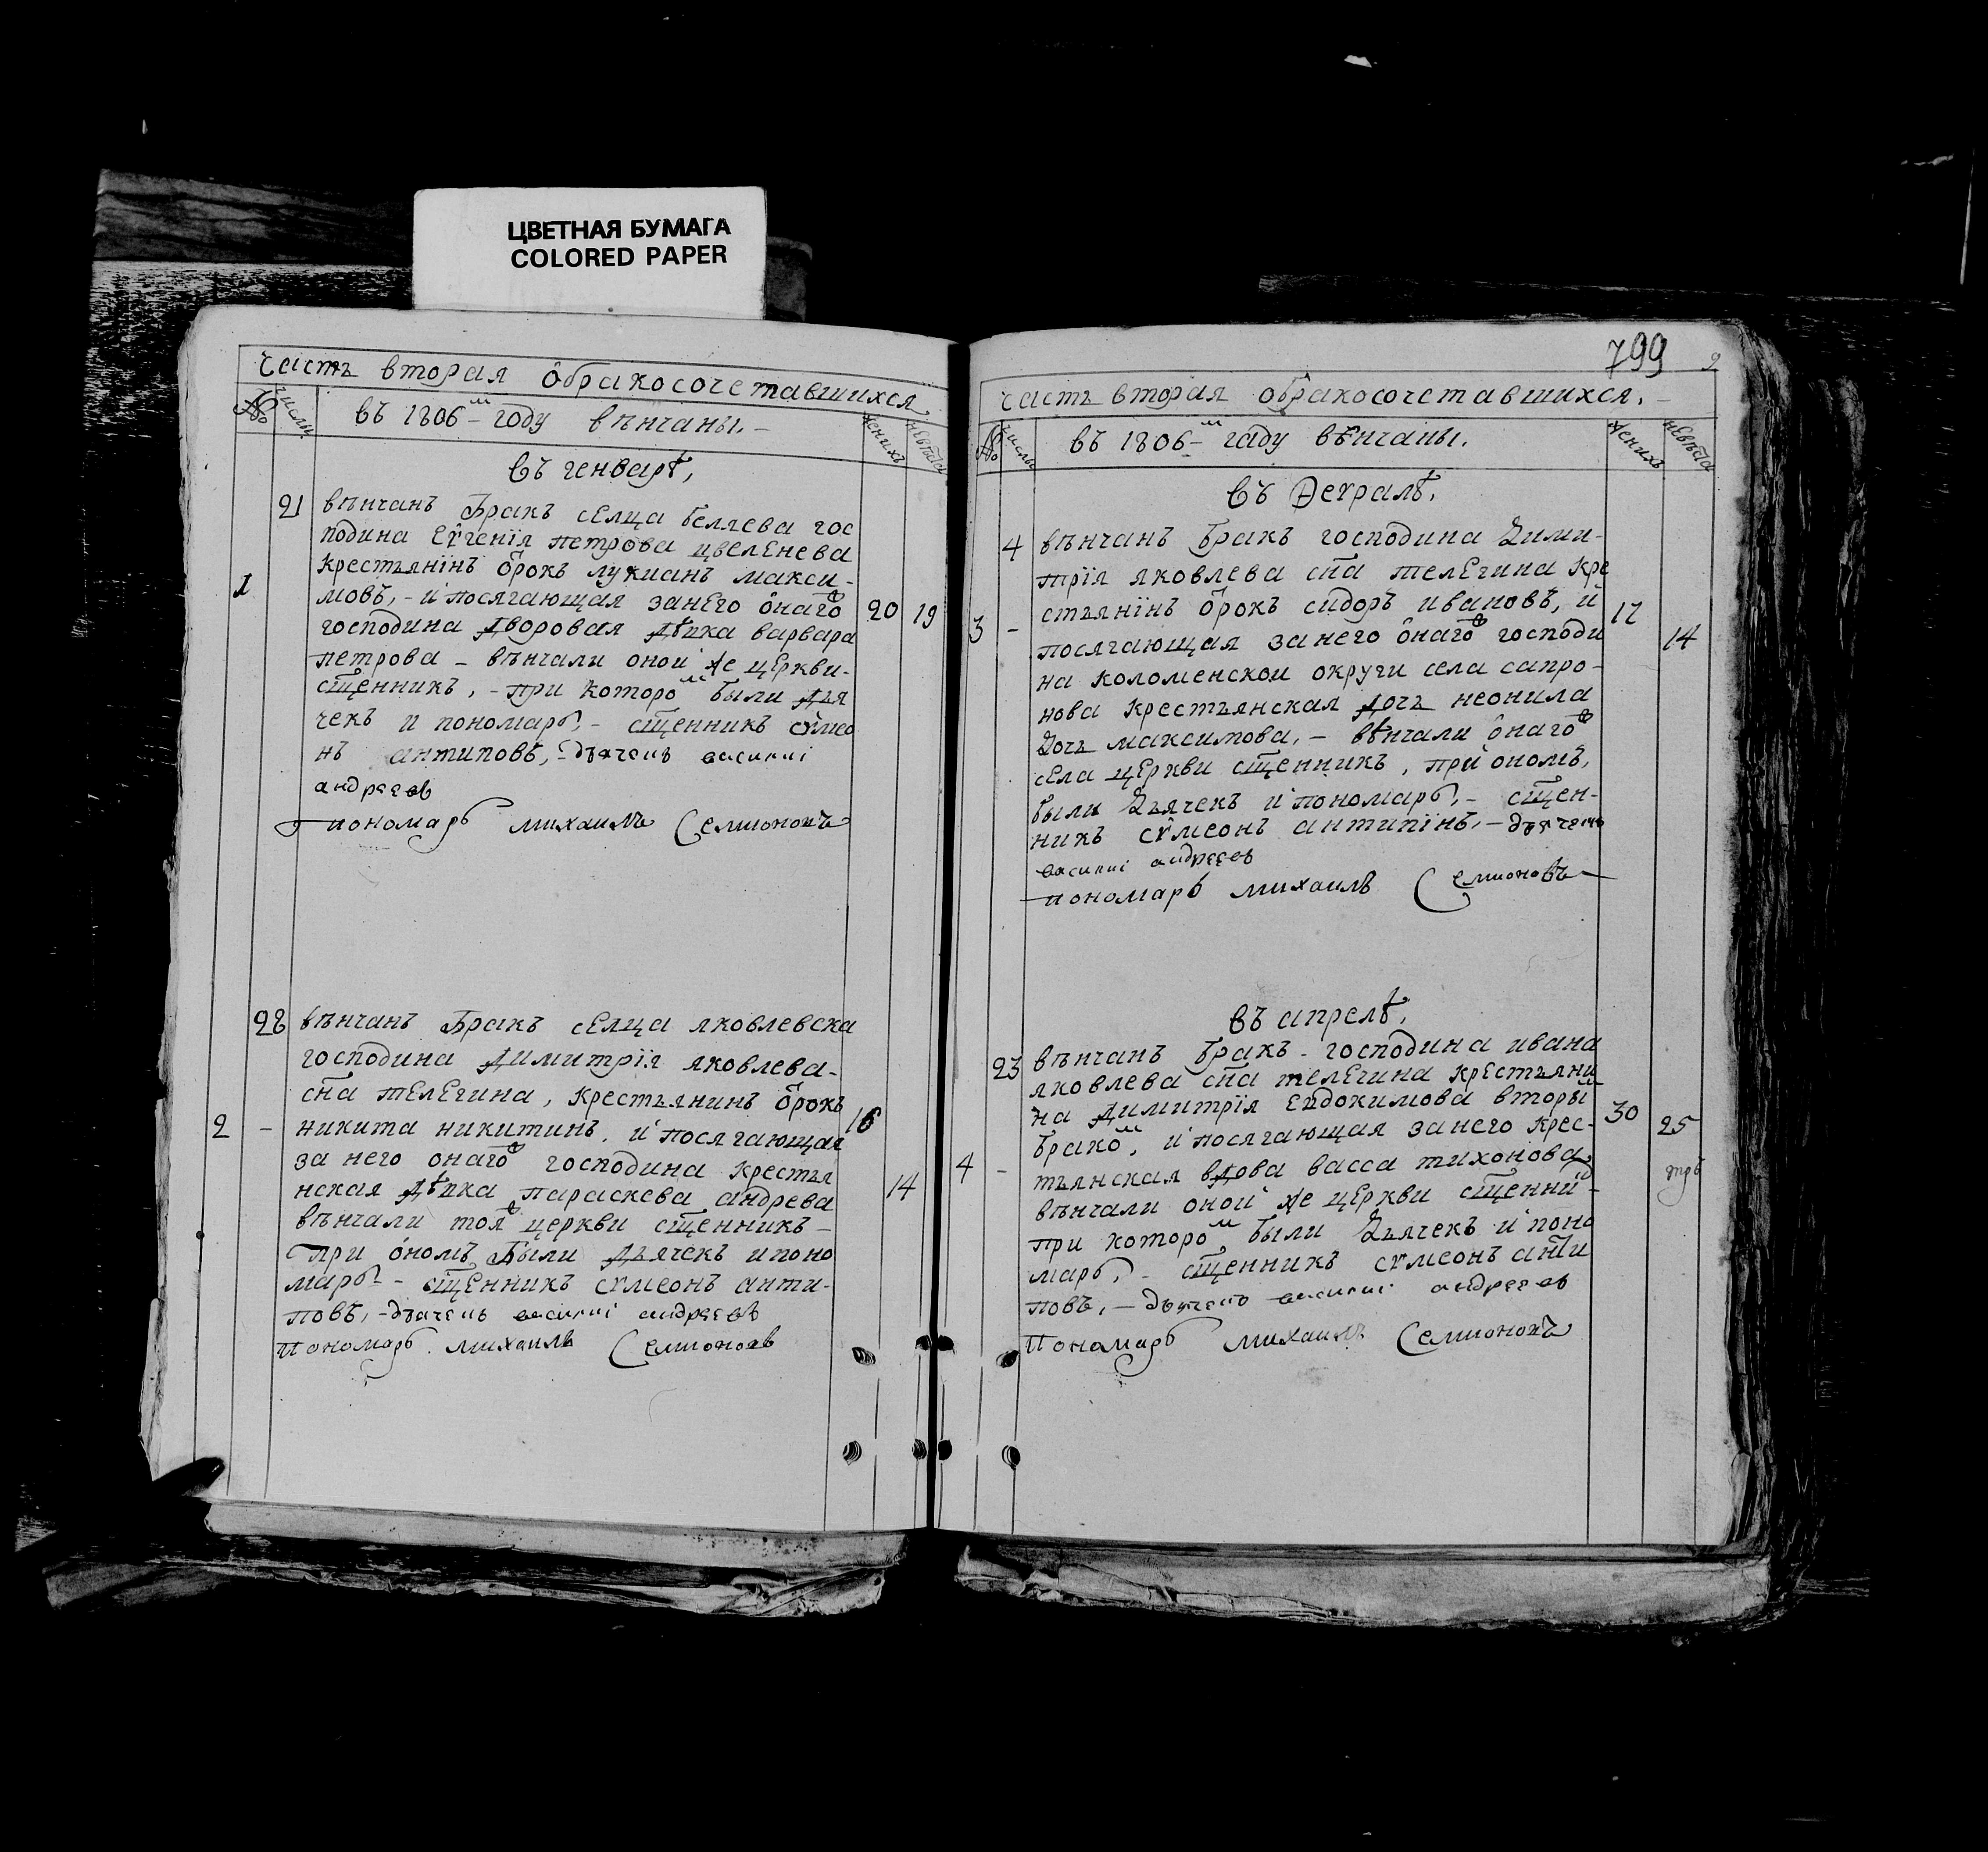 ЦВЕТНАЯ БУМАГА
COLORED PAPER
часть вторая ôбракосочетавшихся
№ числы въ 1806м году вѣнчаны. женихъ невѣста
въ генварѣ,
21 вѣнчанъ Бракъ сЕлца беляева гос
подина Еѵгенїя петрова цвелЕнева
крестьянїнъ ôтрокъ лукианъ макси-
1 мовъ, - и посягающая занЕго ôнагѡ 20 19
господина дворовая дѣвка варвара
петрова - вѣнчали оной же цЕркви-
сщенникъ, - при котором были дья
чекъ и пономарь, - сщенникъ сѵмео
нъ антиповъ, - дьячекъ василиі
андреев
пономарь михаилъ Семионовъ
28 вѣнчанъ Бракъ сЕлца яковлевска
господина димитрїя яковлева-
сна тЕлЕгина, крестьянинъ ôтрокъ
2 - никита никитинъ, и посягающая 16
за него онагѡ господина крестья
нская дѣвка параскева андрева 14
вѣнчали тояѡ церкви сщенникъ -
при óномъ Были дьячекъ и поно
марь - сщЕнникъ сѵмеонъ анти-
повъ, - дьячекъ василиі андреевъ
пономарь михаилъ Семионовъ
799
часть вторая ôбракосочетавшихся. -
№ числы въ 1806-м гаду вѣнчаны. женихъ невѣста
въ Феѵралѣ,
4 вѣнчанъ Бракъ господина Дими-
трїя яковлева сна телЕгина кре
3 - стьянїнъ ôтрокъ сидоръ ивановъ, й 17
посягающая за него ôнагѡ господи 14
на коломенскои округи села сапро-
нова крестьянская дочь неонила
Дочь максимова, - вѣнчали ôнагѡ
сЕла цЕркви сщенникъ, при ономъ,
были Дьячекъ и пономарь, - сщен-
никъ сѵмеонъ антипїнъ, - дьячекъ
василиі андреев
пономарь михаилъ Семионовъ
въ апрелѣ,
23 вѣнчанъ Бракъ - господина ивана
яковлева сна телЕгина крЕстьяни
на димитрїя Евдокимова вторы 30
браком, и посягающая за него крес- 25
4 - тьянская вдова васса тихонова
вѣнчали оной же цЕркви сщенник
при котором были Дьячекъ и поно
марь, - сщенникъ сѵмеонъ анти
повъ, - дьячекъ василиі андреев
пономарь михаилъ Семионовъ